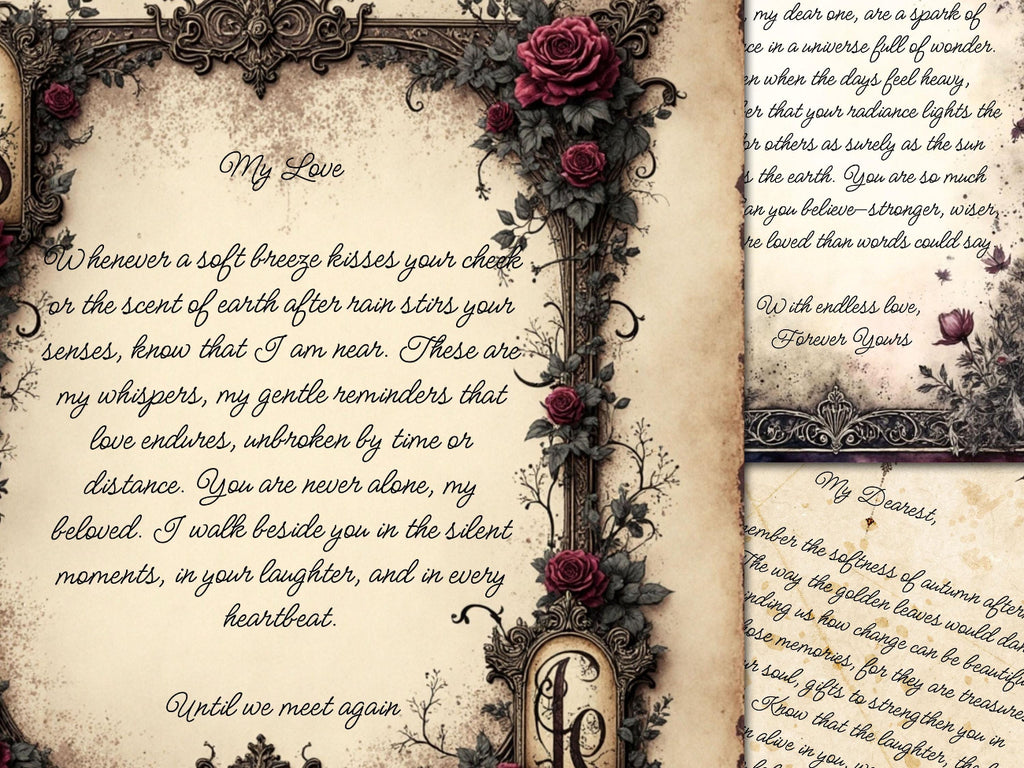 My Love
Whenever a soft breeze kisses your cheek
or the scent of earth after rain stirs your
senses, know that I am near. These are
my whispers, my gentle reminders that
love endures, unbroken by time or
distance. You are never alone, my
beloved. I walk beside you in the silent
moments, in your laughter, and in every
heartbeat.
Until we meet again
my dear one, are a spark of
in a universe full of wonder.
when the days feel heavy,
that your radiance lights the
others as surely as the sun
the earth. You are so much
you believe—stronger, wiser,
loved than words could say
With endless love,
Forever Yours
My Dearest,
the softness of autumn
The way the golden leaves would
us how change can be
memories, for they are
soul, gifts to strengthen you in
Know that the laughter,
alive in you,